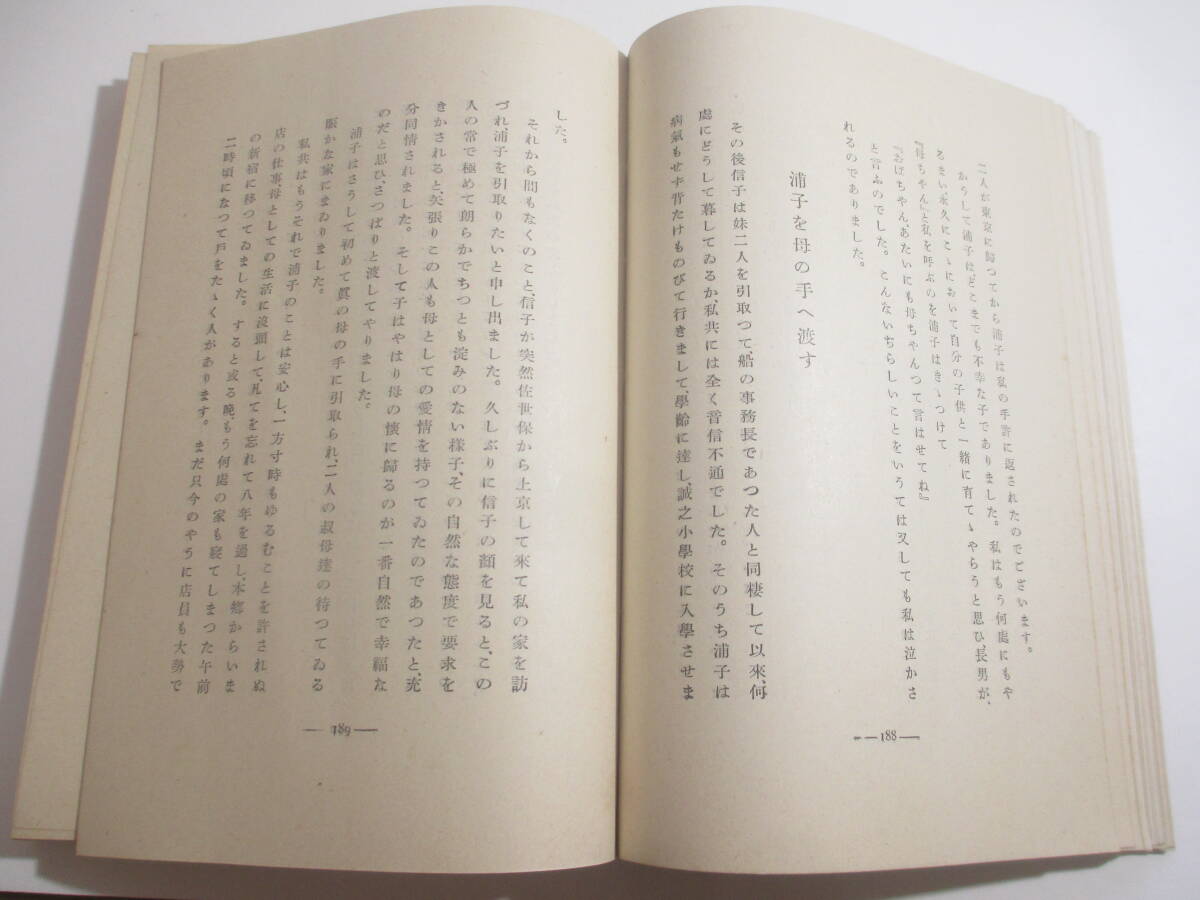 二人が東京に歸つてから浦子は私の手許に返されたのでございます。
かうして浦子はどこまでも不幸な子でありました。私はもう何處にもや
るまい、永久にこゝにおいて自分の子供と一緒に育てゝやらうと思ひ、長男が、
『母ちやん』と私を呼ぶのを浦子はきゝつけて
『おばちやん、あたいにも母ちやんつて言はせてね』
と言ふのでした。こんないぢらしいことをいうては又しても私は泣かさ
れるのでありました。
浦子を母の手へ渡す
その後信子は妹二人を引取つて、船の事務長であつた人と同棲して以來、何
處にどうして暮してゐるか、私共には全く音信不通でした。そのうち浦子は
病氣もせず背たけものびて行きまして、學齡に達し、誠之小學校に入學させま
— 188 —
した。
それから間もなくのこと、信子が突然佐世保から上京して來て私の家を訪
づれ、浦子を引取りたいと申し出ました。久しぶりに信子の顔を見ると、この
人の常で極めて朗らかでちつとも淀みのない樣子、その自然な態度で要求を
きかされると、矢張りこの人も母としての愛情を持つてゐたのであつたと、充
分同情されました。そして子はやはり母の懷に歸るのが一番自然で幸福な
のだと思ひ、さつぱりと渡してやりました。
浦子はさうして初めて眞の母の手に引取られ、二人の叔母達の待つてゐる
賑かな家にまゐりました。
私共はもうそれで浦子のことは安心し、一方寸時もゆるむことを許されぬ
店の仕事、母としての生活に沒頭して、凡てを忘れて八年を過し、本郷からいま
の新宿に移つてゐました。すると或る晩、もう何處の家も寢てしまつた午前
二時頃になつて戸をたゝく人があります。まだ只今のやうに店員も大勢で
— 189 —